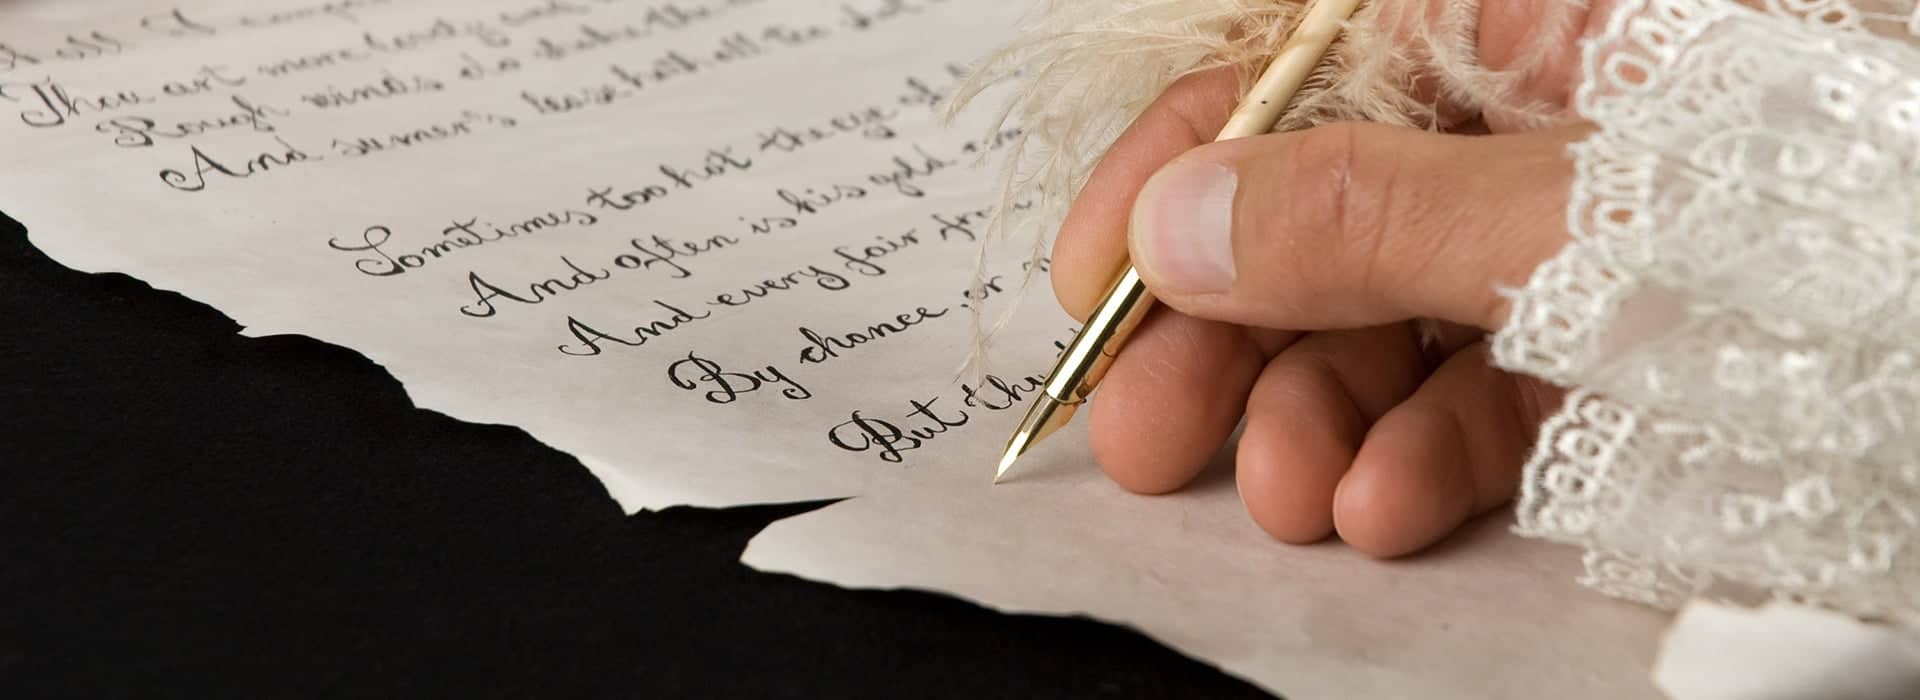 I
Thou art more lovely and
Rough winds do shake the
And sumer's lease hath all too
Sometimes too hot the eye of
And often is his gold
And every fair from
By chance or
But thy